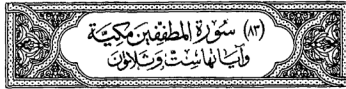 (٨٣) سُورَةُ المَطَفِّفِينَ مَكِيَّة
وَآيَاتُهَا سِتٌّ وَثَلَاثُونَ